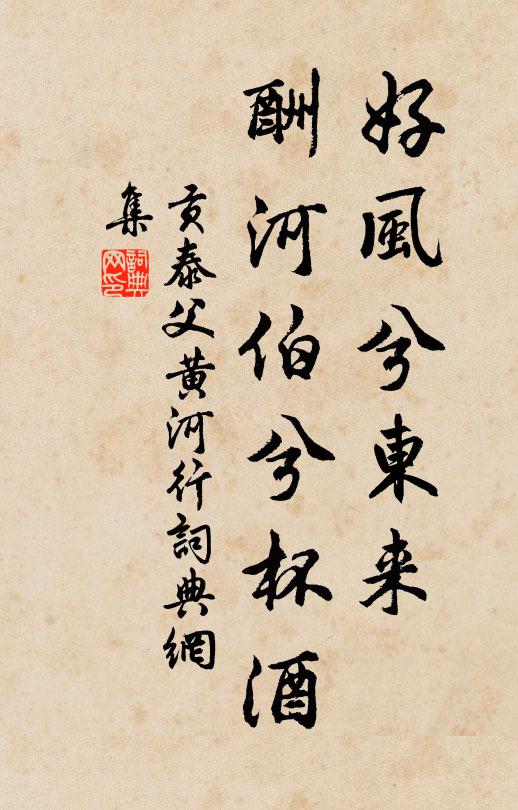 好風兮東来
酬河伯兮杯酒
貢泰父黄河行詞典網
集
詞典
网印